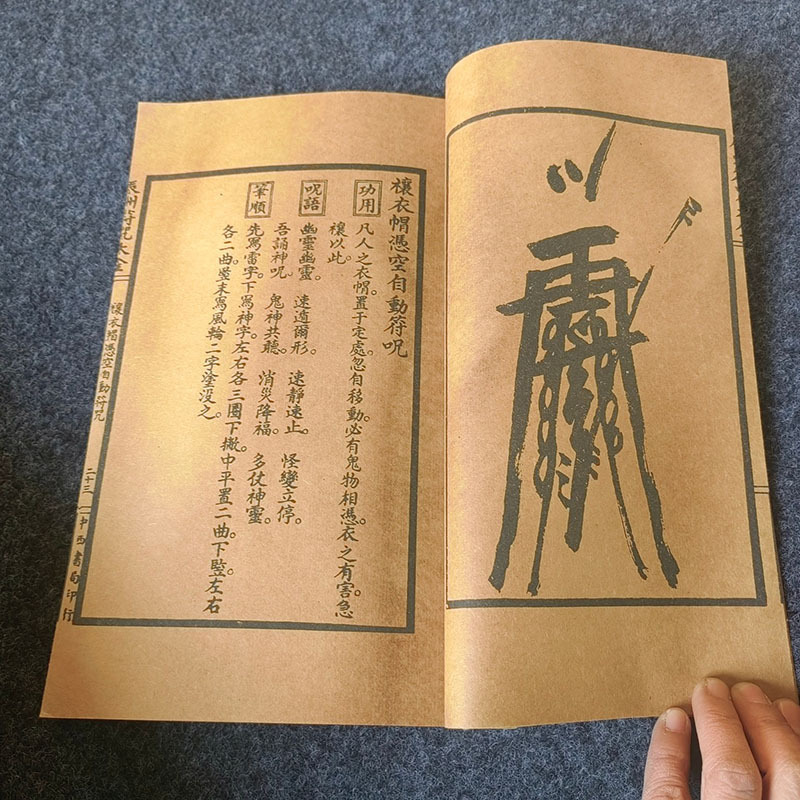 禳衣帽憑空自動符呪
功用
凡人之衣帽。置于定處。忽自移動。必有鬼物相憑。衣之有害。急
禳以此。
呪語
幽靈幽靈。速遁爾形。速靜速止。怪變立停。
吾誦神呪。鬼神共聽。消災降福。多仗神靈。
筆順
先寫雷字。下寫神字。左右各三圈下撇。中平置二曲。下竪左右
各二曲。疊末寫風輪二字塗没之。
辰州符咒大全
禳衣帽憑空自動符咒
二十三
中西書局印行